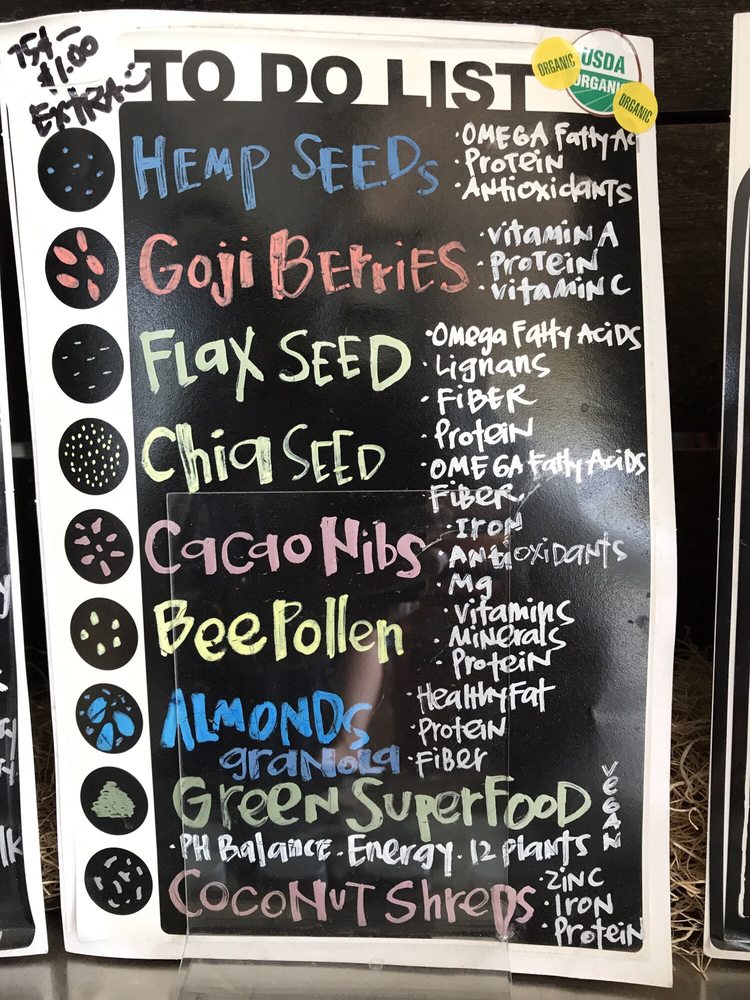 75¢ -
$1.00
EXTRA
TO DO LIST
ORGANIC
USDA
ORGANIC
ORGANIC
HEMP SEEDS
· OMEGA Fatty Ac
· PROTEIN
· Antioxidants
Goji BERRIES
· Vitamin A
· PROTEIN
· Vitamin C
FLAX SEED
· Omega Fatty Acids
· Lignans
· FIBER
Chia SEED
· Protein
· OMEGA Fatty Acids
FIBER
Cacao Nibs
· IRON
· Antioxidants
· Mg
Bee Pollen
· Vitamins
· Minerals
· Protein
ALMONDS
granola
· Healthy Fat
· Protein
· FIBER
GREEN SUPERFOOD
VEGAN
· PH Balance · Energy · 12 plants
COCONUT SHREDS
· ZINC
· IRON
· Protein